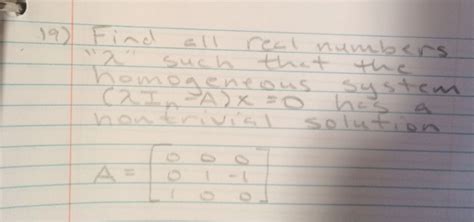 19) Find all real numbers
"λ" such that the
homogeneous system
(λIₙ-A)x=0 has a
nontrivial solution
A = [0 0 0
0 1 -1
1 0 0]